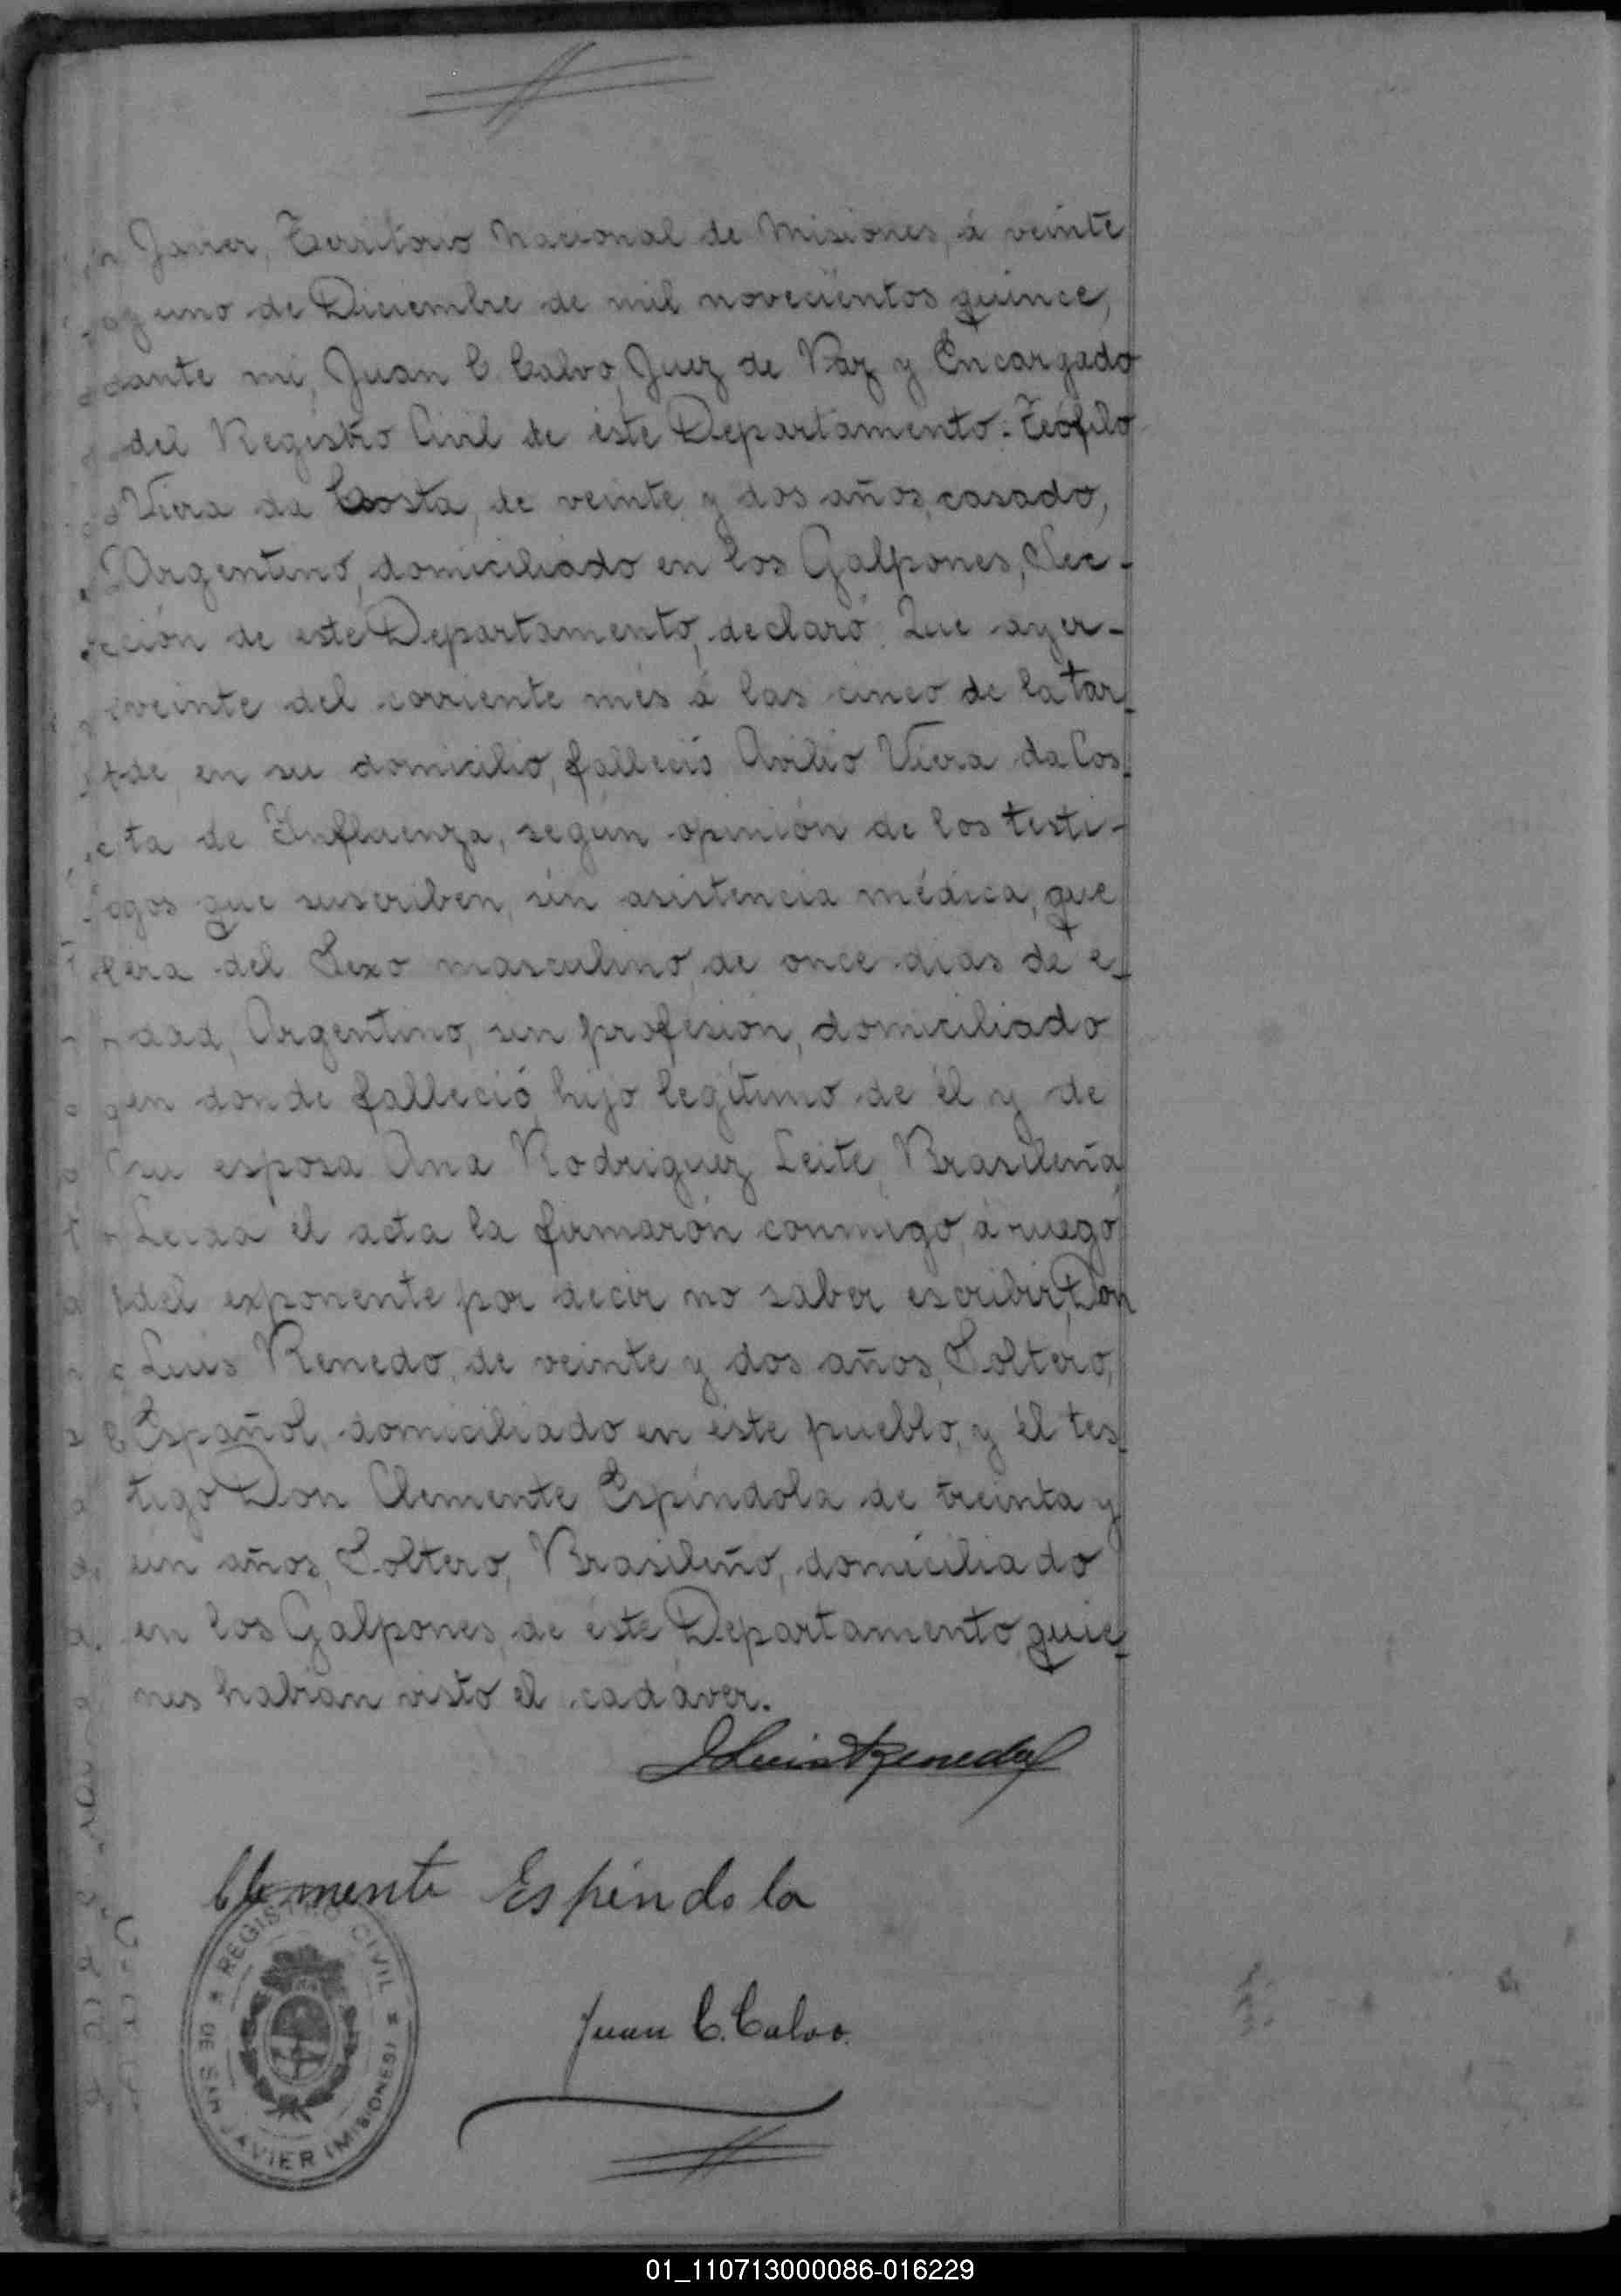 Javier, Territorio Nacional de Misiones, á veinte
y uno de Diciembre de mil novecientos quince,
ante mi, Juan C. Calvo, Juez de Paz y Encargado
del Registro Civil de éste Departamento. Teófilo
Viera da Costa, de veinte y dos años, casado,
Argentino, domiciliado en los Galpones, Sec-
ción de esté Departamento, declaró: Que ayer-
veinte del corriente més á las cinco de la tar-
de, en su domicilio, falleció Avilio Viera da Cos-
ta de Influenza, según opinión de los testi-
gos que suscriben, sin asistencia médica, que
era del Sexo masculino, de once dias de e-
dad, Argentino, sin profesión, domiciliado
en donde falleció, hijo legítimo de él y de
su esposa Ana Rodriguez Leite, Brasileña,
Leida él acta la firmarón conmigo, á ruego
del exponente por decir no saber escribir, Don
Luis Renedo, de veinte y dos años, Soltero,
Español, domiciliado en éste pueblo, y él tes-
tigo Don Clemente Espíndola de treinta y
un años, Soltero, Brasileño, domiciliado
en los Galpones, de éste Departamento, quie-
nes habian visto el cadáver.
Luis Renedo
Clemente Espíndola
REGISTRO CIVIL
DE SAN JAVIER (MISIONES)
Juan C. Calvo.
01_110713000086-016229